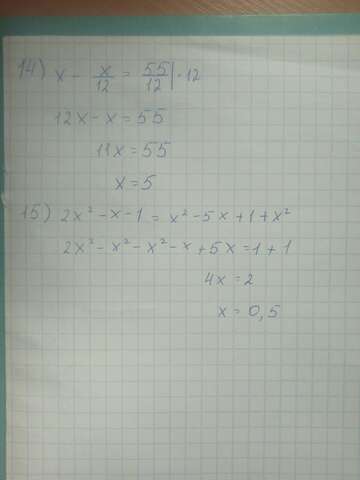 14) x - x/12 = 55/12 | · 12
12x - x = 55
11x = 55
x = 5
15) 2x² - x - 1 = x² - 5x + 1 + x²
2x² - x² - x² - x + 5x = 1 + 1
4x = 2
x = 0,5